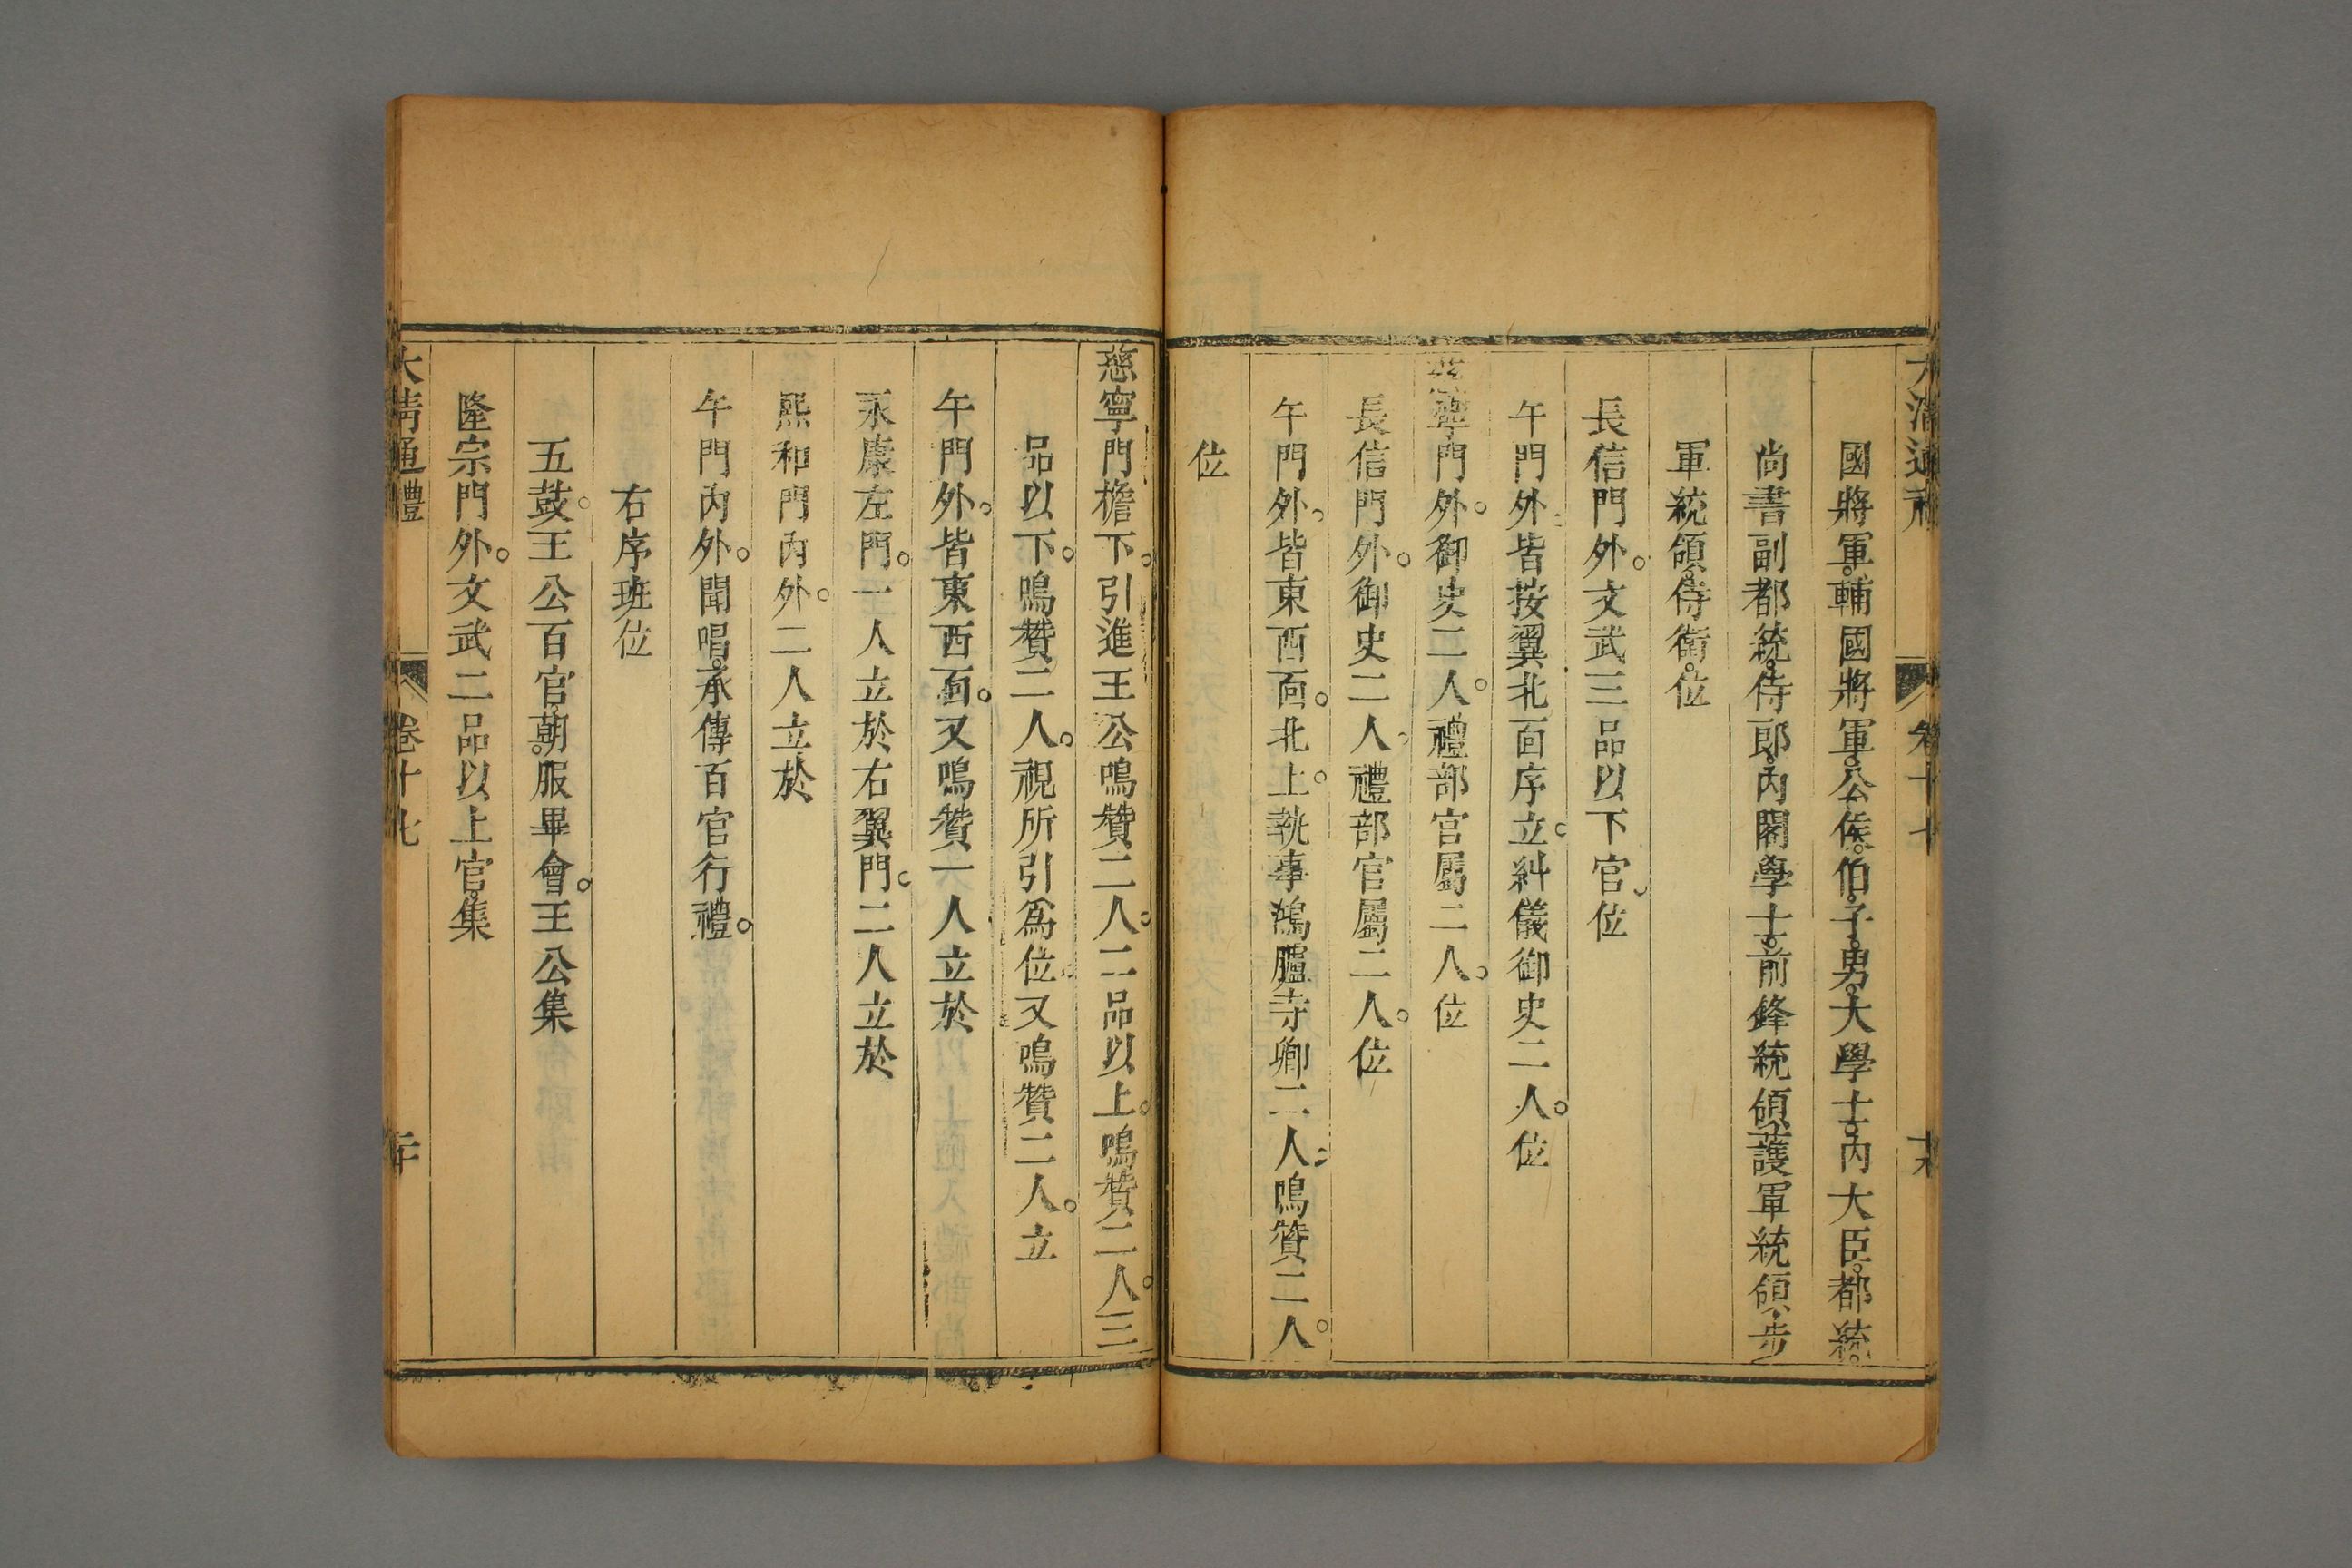 大清通禮 卷十七
國將軍。輔國將軍。公。侯。伯。子。男。大學士。內大臣。都統。
尚書。副都統。侍郎。內閣學士。前鋒統領。護軍統領。步
軍統領。侍衛。位
長信門外。文武三品以下官。位
午門外。皆按翼北面序立。糾儀御史二人。位
慈寧門外。御史二人。禮部官屬二人。位
長信門外。御史二人。禮部官屬二人。位
午門外。皆東西面。北上。執事鴻臚寺卿二人。鳴贊二人。
位
慈寧門檐下。引進王公鳴贊二人。二品以上。鳴贊二人。三
品以下。鳴贊二人。視所引爲位。又鳴贊二人。立
午門外。皆東西面。又鳴贊一人立於
永康左門。一人立於右翼門。二人立於
熙和門內外。二人立於
午門內外。聞唱。承傳百官行禮。
右序班位
五鼓。王公百官。朝服畢會。王公集
隆宗門外。文武二品以上官。集
大清通禮 卷十七 二十